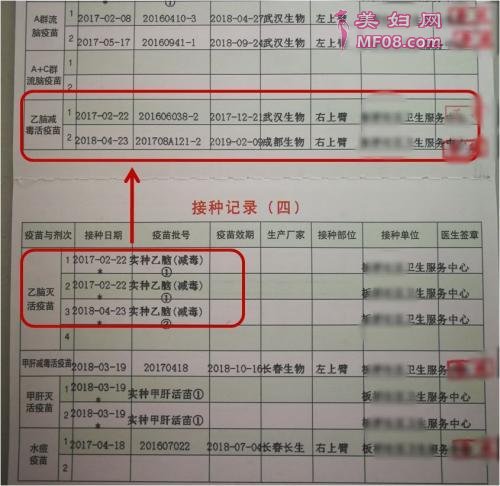 美妇网
MF08.com
A群流脑疫苗 1 2017-02-08 20160410-3 2018-04-27 武汉生物 左上臂
2 2017-05-17 20160941-1 2018-09-24 武汉生物 左上臂
A+C群流脑疫苗 1
2
乙脑减毒活疫苗 1 2017-02-22 201606038-2 2017-12-21 武汉生物 右上臂 卫生服务中心
2 2018-04-23 201708A121-2 2019-02-09 成都生物 右上臂 卫生服务中心
接种记录（四）
疫苗与剂次 接种日期 疫苗批号 疫苗效期 生产厂家 接种部位 接种单位 医生签章
乙脑灭活疫苗 1 2017-02-22 * 实种乙脑(减毒)① 卫生服务中心
2 2017-02-22 * 实种乙脑(减毒)① 板 卫生服务中心
3 2018-04-23 * 实种乙脑(减毒)② 板 卫生服务中心
4
甲肝减毒活疫苗 2018-03-19 20170418 2018-10-16 长春生物 左上臂 板 卫生服务中心
甲肝灭活疫苗 1 2018-03-19 * 实种甲肝活苗① 板 卫生服务中心
2 2018-03-19 * 实种甲肝活苗① 板 卫生服务中心
水痘疫苗 1 2017-04-18 201607022 2018-07-04 长春长生 右上臂 板 卫生服务中心
2